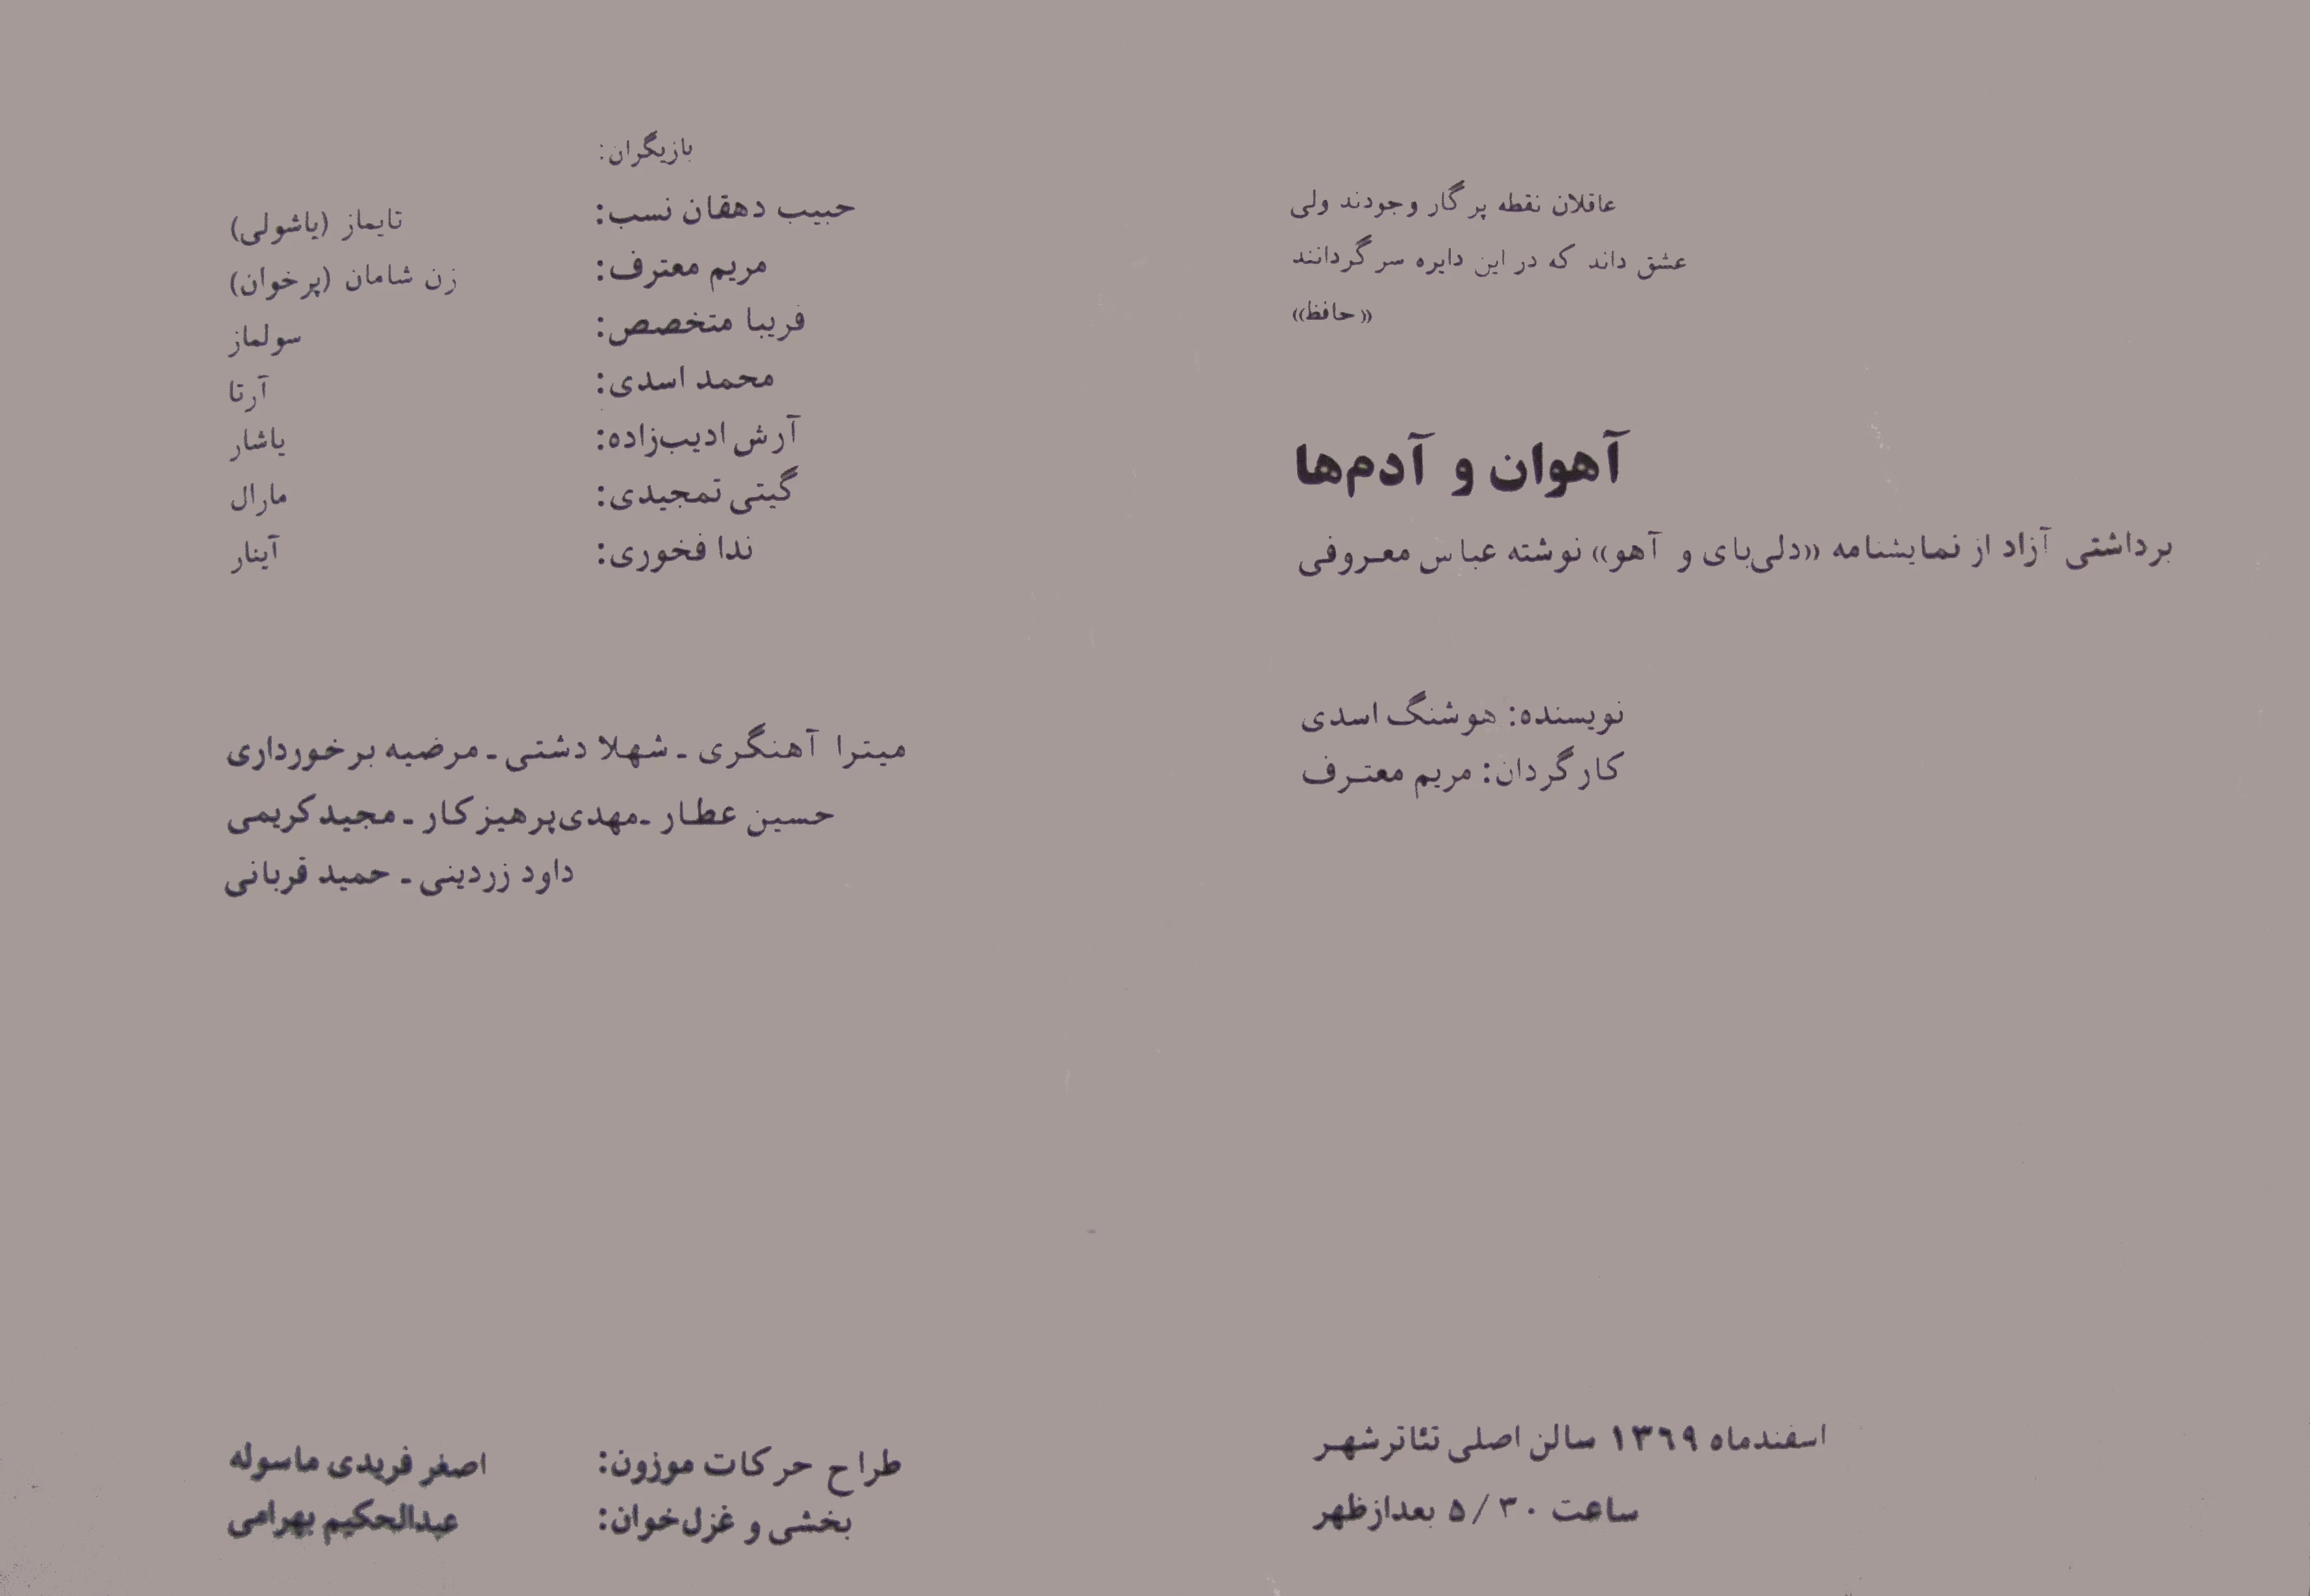 عاقلان نقطه پرگار وجودند ولی
عشق داند که در این دایره سرگردانند
«حافظ»
آهوان و آدم‌ها
برداشتی آزاد از نمایشنامه «دلی‌بای و آهو» نوشته عباس معروفی
نویسنده: هوشنگ اسدی
کارگردان: مریم معترف
اسفندماه ۱۳۶۹ سالن اصلی تئاترشهر
ساعت ۵/۳۰ بعدازظهر
بازیگران:
حبیب دهقان نسب: تایماز (یاشولی)
مریم معترف: زن شامان (پرخوان)
فریبا متخصص: سولماز
محمد اسدی: آرتا
آرش ادیب‌زاده: یاشار
گیتی تمجیدی: مارال
ندا فخوری: آینار
میترا آهنگری ـ شهلا دشتی ـ مرضیه برخورداری
حسین عطار ـ مهدی پرهیزکار ـ مجید کریمی
داود زردینی ـ حمید قربانی
طراح حرکات موزون: اصغر فریدی ماسوله
بخشی و غزل‌خوان: عبدالحکیم بهرامی